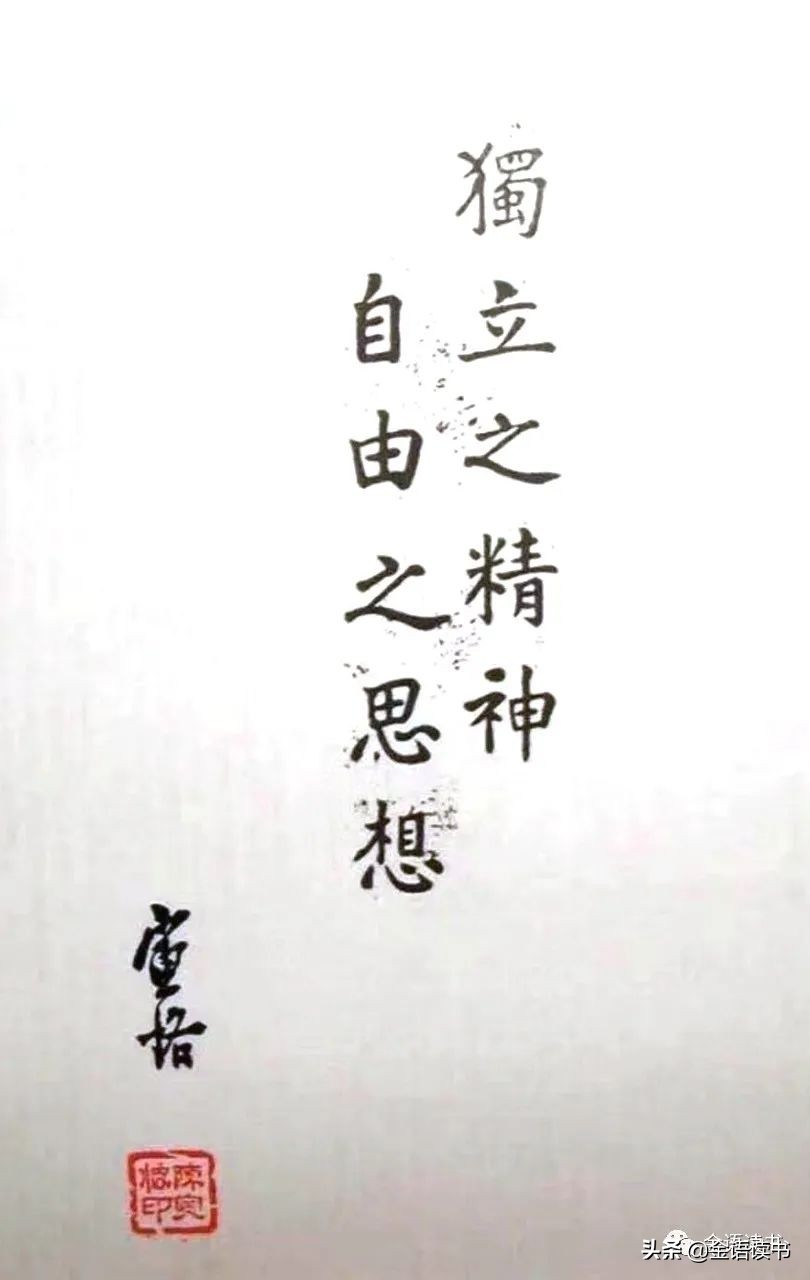 獨立之精神
自由之思想
寅恪
陳寅
恪印
头条@金语读书